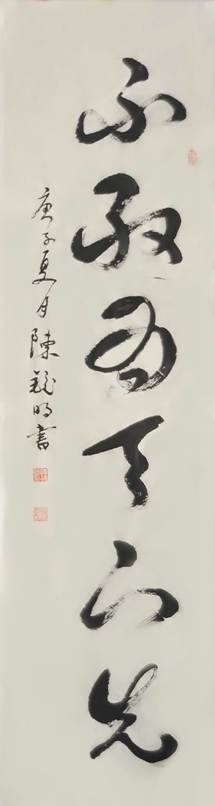 不敢為天下先
庚子夏月陳龍明書